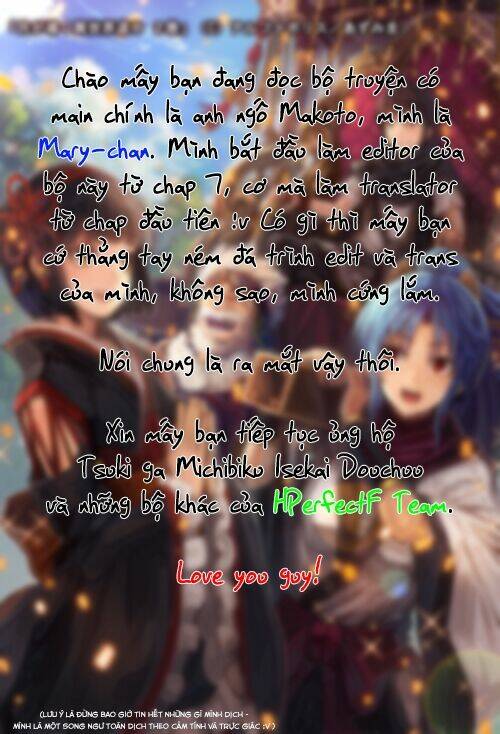 Chào mấy bạn đang đọc bộ truyện có
main chính là anh ngố Makoto, mình là
Mary-chan. Mình bắt đầu làm editor của
bộ này từ chap 7, cơ mà làm translator
từ chap đầu tiên :v Có gì thì mấy bạn
cứ thẳng tay ném đá trình edit và trans
của mình, không sao, mình cứng lắm.
Nói chung là ra mắt vậy thôi.
Xin mấy bạn tiếp tục ủng hộ
Tsuki ga Michibiku Isekai Douchuu
và những bộ khác của HPerfectF Team.
Love you guy!
(LƯU Ý LÀ ĐỪNG BAO GIỜ TIN HẾT NHỮNG GÌ MÌNH DỊCH -
MÌNH LÀ MỘT SONG NGƯ TOÀN DỊCH THEO CẢM TÍNH VÀ TRỰC GIÁC :V )